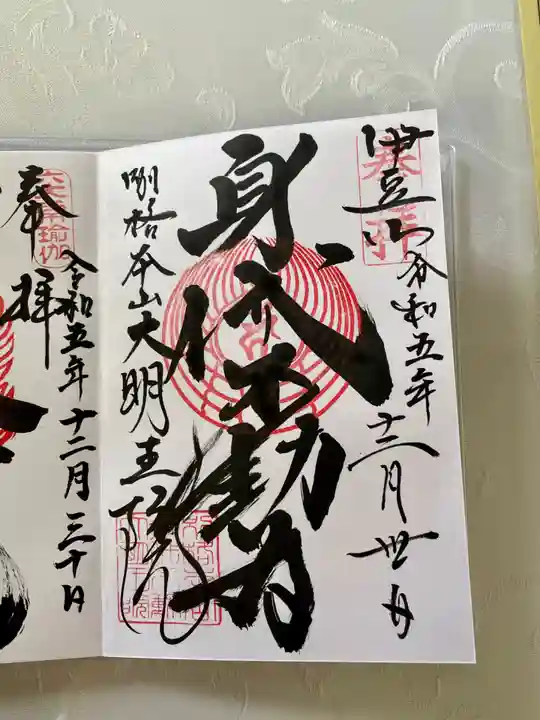 奉拝
伊豆山 令和五年十二月丗日
身代不動尊
別格本山大明王院
奉拝
令和五年十二月三十日